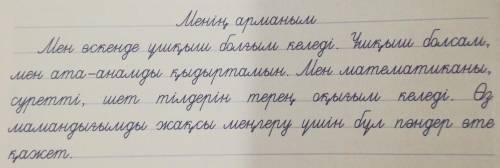 Менің арманым
Мен өскенде ұшқыш болғым келеді. Ұшқыш болсам,
мен ата-анамды қыдыртамын. Мен математиканы,
суретті, шет тілдерін терең оқығым келеді. Өз
мамандығымды жақсы меңгеру үшін бұл пәндер өте
қажет.